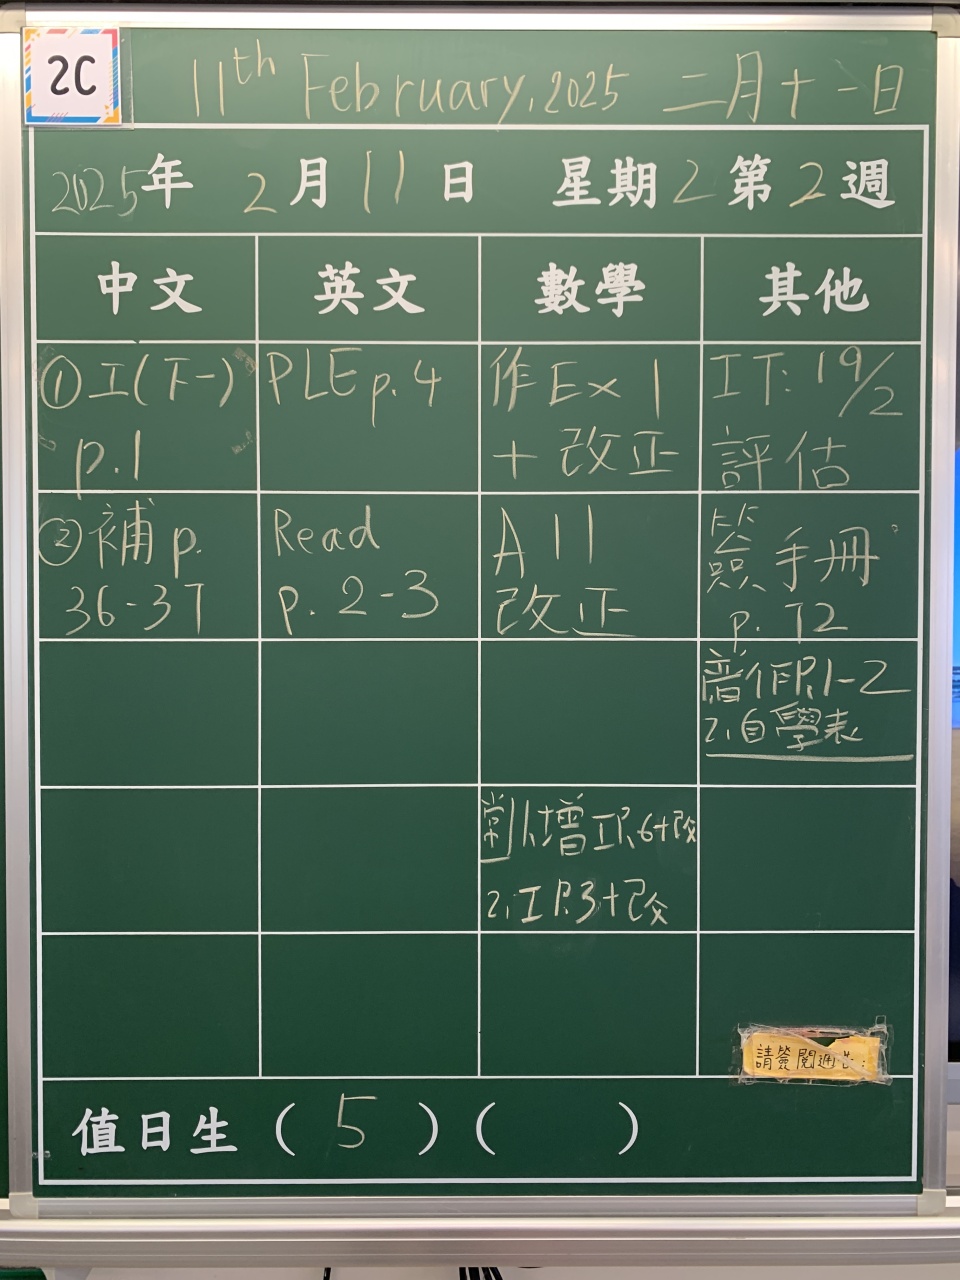 2C
11th February, 2025 二月十一日
2025年 2月11日 星期2第2週
中文 英文 數學 其他
①工(下一)
p.1
PLE p.4
作Ex 1
+ 改正
IT: 19/2
評估
②補p.
36-37
Read
p. 2-3
A11
改正
簽手冊
p. 72
普作P.1-2
2.自學表
1.增工P.6+改
2.工P.3+改
請簽閱通告
值日生 ( 5 ) ( )